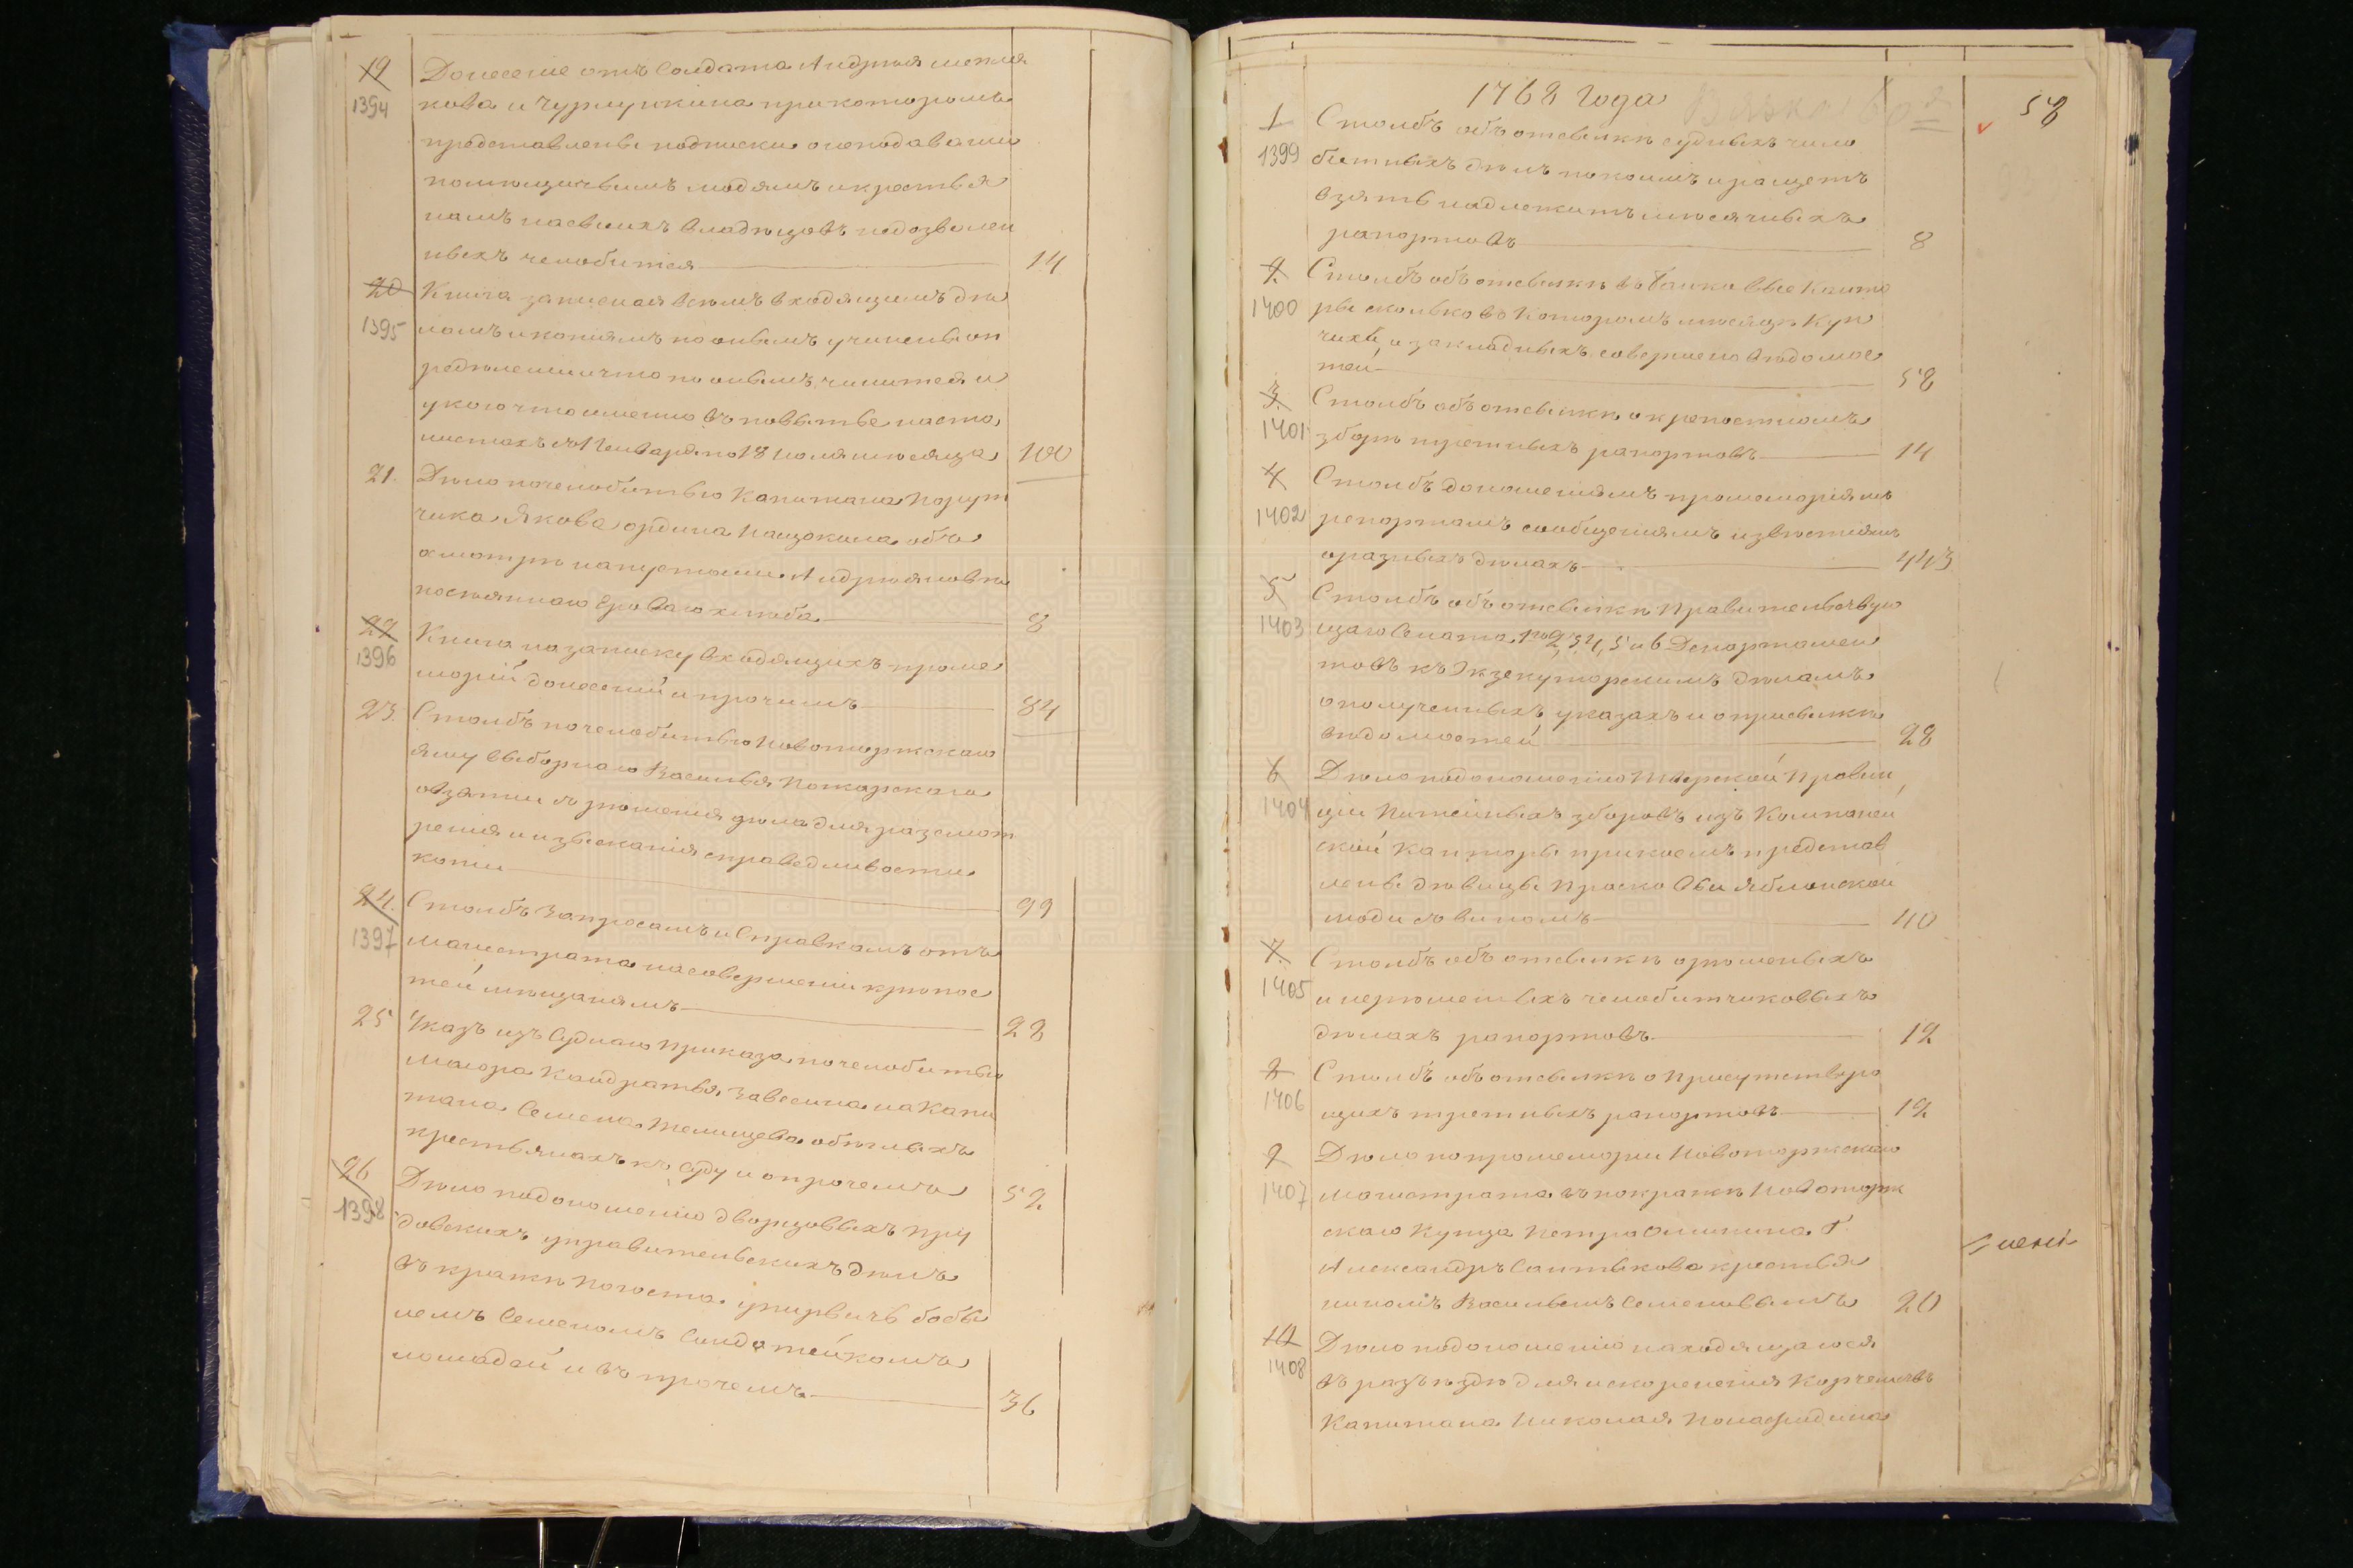 19
1394
Донесение отъ Солдата Андрея
кова и Чурлушкина при которомъ
представлены подписки о неподаваши
помещичьимъ людямъ и крестья
намъ на своихъ владелцовъ недозволен
ныхъ челобитея 14
20
1395
Книга записная всемъ входящимъ де
ламъ и копиямъ по онымъ учинены оп
ределении и что по онымъ чинитея и
у кого что имянно въ повытье на сто
листахъ съ 1 Генваря по 18 Июля месяца 100
21. Дело по челобитью Капитана Порут
чика Якова Ордина Нащокина объ
осмотре на пустоши Андреяновке
посеяннаго Яроваго хлеба 8
22
1396
Книга на записку входящихъ проме
морий донесений и прочимъ 84
23. Столбъ по челобитью Новоторжскаго
яму выборнаго Василья Пожарскаго
о взятии съ решения дела для разсмот
рения и изыскания справедливости
копии 99
24.
1397
Столбъ Запросамъ и Справкамъ отъ
Магистрата на совершении крепос
тей мещанямъ 28
25 Указъ изъ Суднаго Приказа по челобитью
Маиора Кандратья Завесина на Капи
тана Семена Телищева обеглыхъ
крестьянахъ къ суду и о прочемъ 52
26
1398
Дело по доношению дворцовыхъ Пру
довскихъ управительскихъ делъ
въ краже Погоста бобы
лемъ Семеномъ Солдатёнкомъ
лошадей и въ прочемъ 36
1768 Года
58
1
1399
Столбъ объ отсылке судныхъ чело
битныхъ делъ по коимъ и ращетъ
взять надлежитъ месячныхъ
рапортовъ 8
2
1400
Столбъ объ отсылке въ банковые Конто
ры сколько въ которомъ месяце Куп
чихъ и закладныхъ совершено ведомос
тей 58
3.
1401
Столбъ объ отсылке о крепостномъ
зборе третныхъ рапортовъ 14
4
1402
Столбъ доношениямъ промемориямъ
репортамъ сообщениямъ известиямъ
о разныхъ делахъ 443
5
1403
Столбъ объ отсылке Правительствую
щаго Сената 1го 2, 3, 4, 5 и 6 Департамен
товъ къ Экзекуторскимъ деламъ
о полученныхъ указахъ и о присылке
ведомостей 28
6
1404
Дело по доношению Тверской Провин
ции Питейныхъ зборовъ изъ Компаней
ской Канторы при коемъ представ
лены девицы Проско вьи Яблонской
люди съ виномъ 40
7.
1405
Столбъ объ отсылке о решеныхъ
и нерешеныхъ челобитчиковыхъ
делахъ рапортовъ 12
8
1406
Столбъ объ отсылке о присутствую
щихъ третныхъ рапортовъ 12
9
1407
Дело по промемории Новоторжскаго
Магистрата въ покраже Новоторж
скаго Купца Петра Олипина Г.
Александръ Салтыкова крестья
ниномъ Васильемъ Семеновымъ 20
10
1408
Дело по доношению находящагося
въ разъезде для искоренения Корчемствъ
Капитана Николая Понафидина